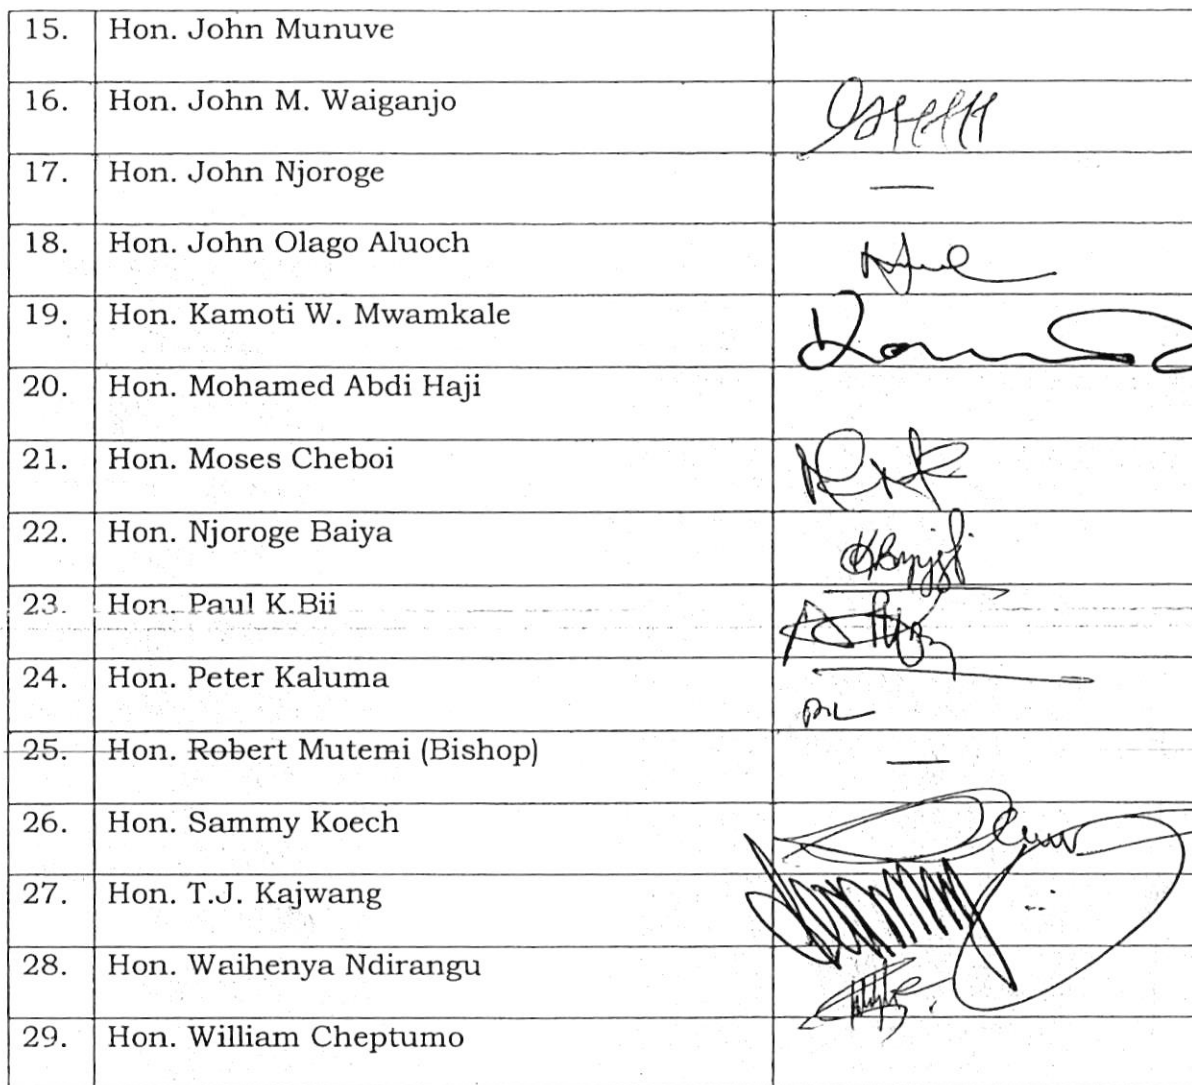 15. Hon. John Munuve
16. Hon. John M. Waiganjo
17. Hon. John Njoroge
18. Hon. John Olago Aluoch
19. Hon. Kamoti W. Mwamkale
20. Hon. Mohamed Abdi Haji
21. Hon. Moses Cheboi
22. Hon. Njoroge Baiya
23. Hon. Paul K.Bii
24. Hon. Peter Kaluma
25. Hon. Robert Mutemi (Bishop)
26. Hon. Sammy Koech
27. Hon. T.J. Kajwang
28. Hon. Waihenya Ndirangu
29. Hon. William Cheptumo